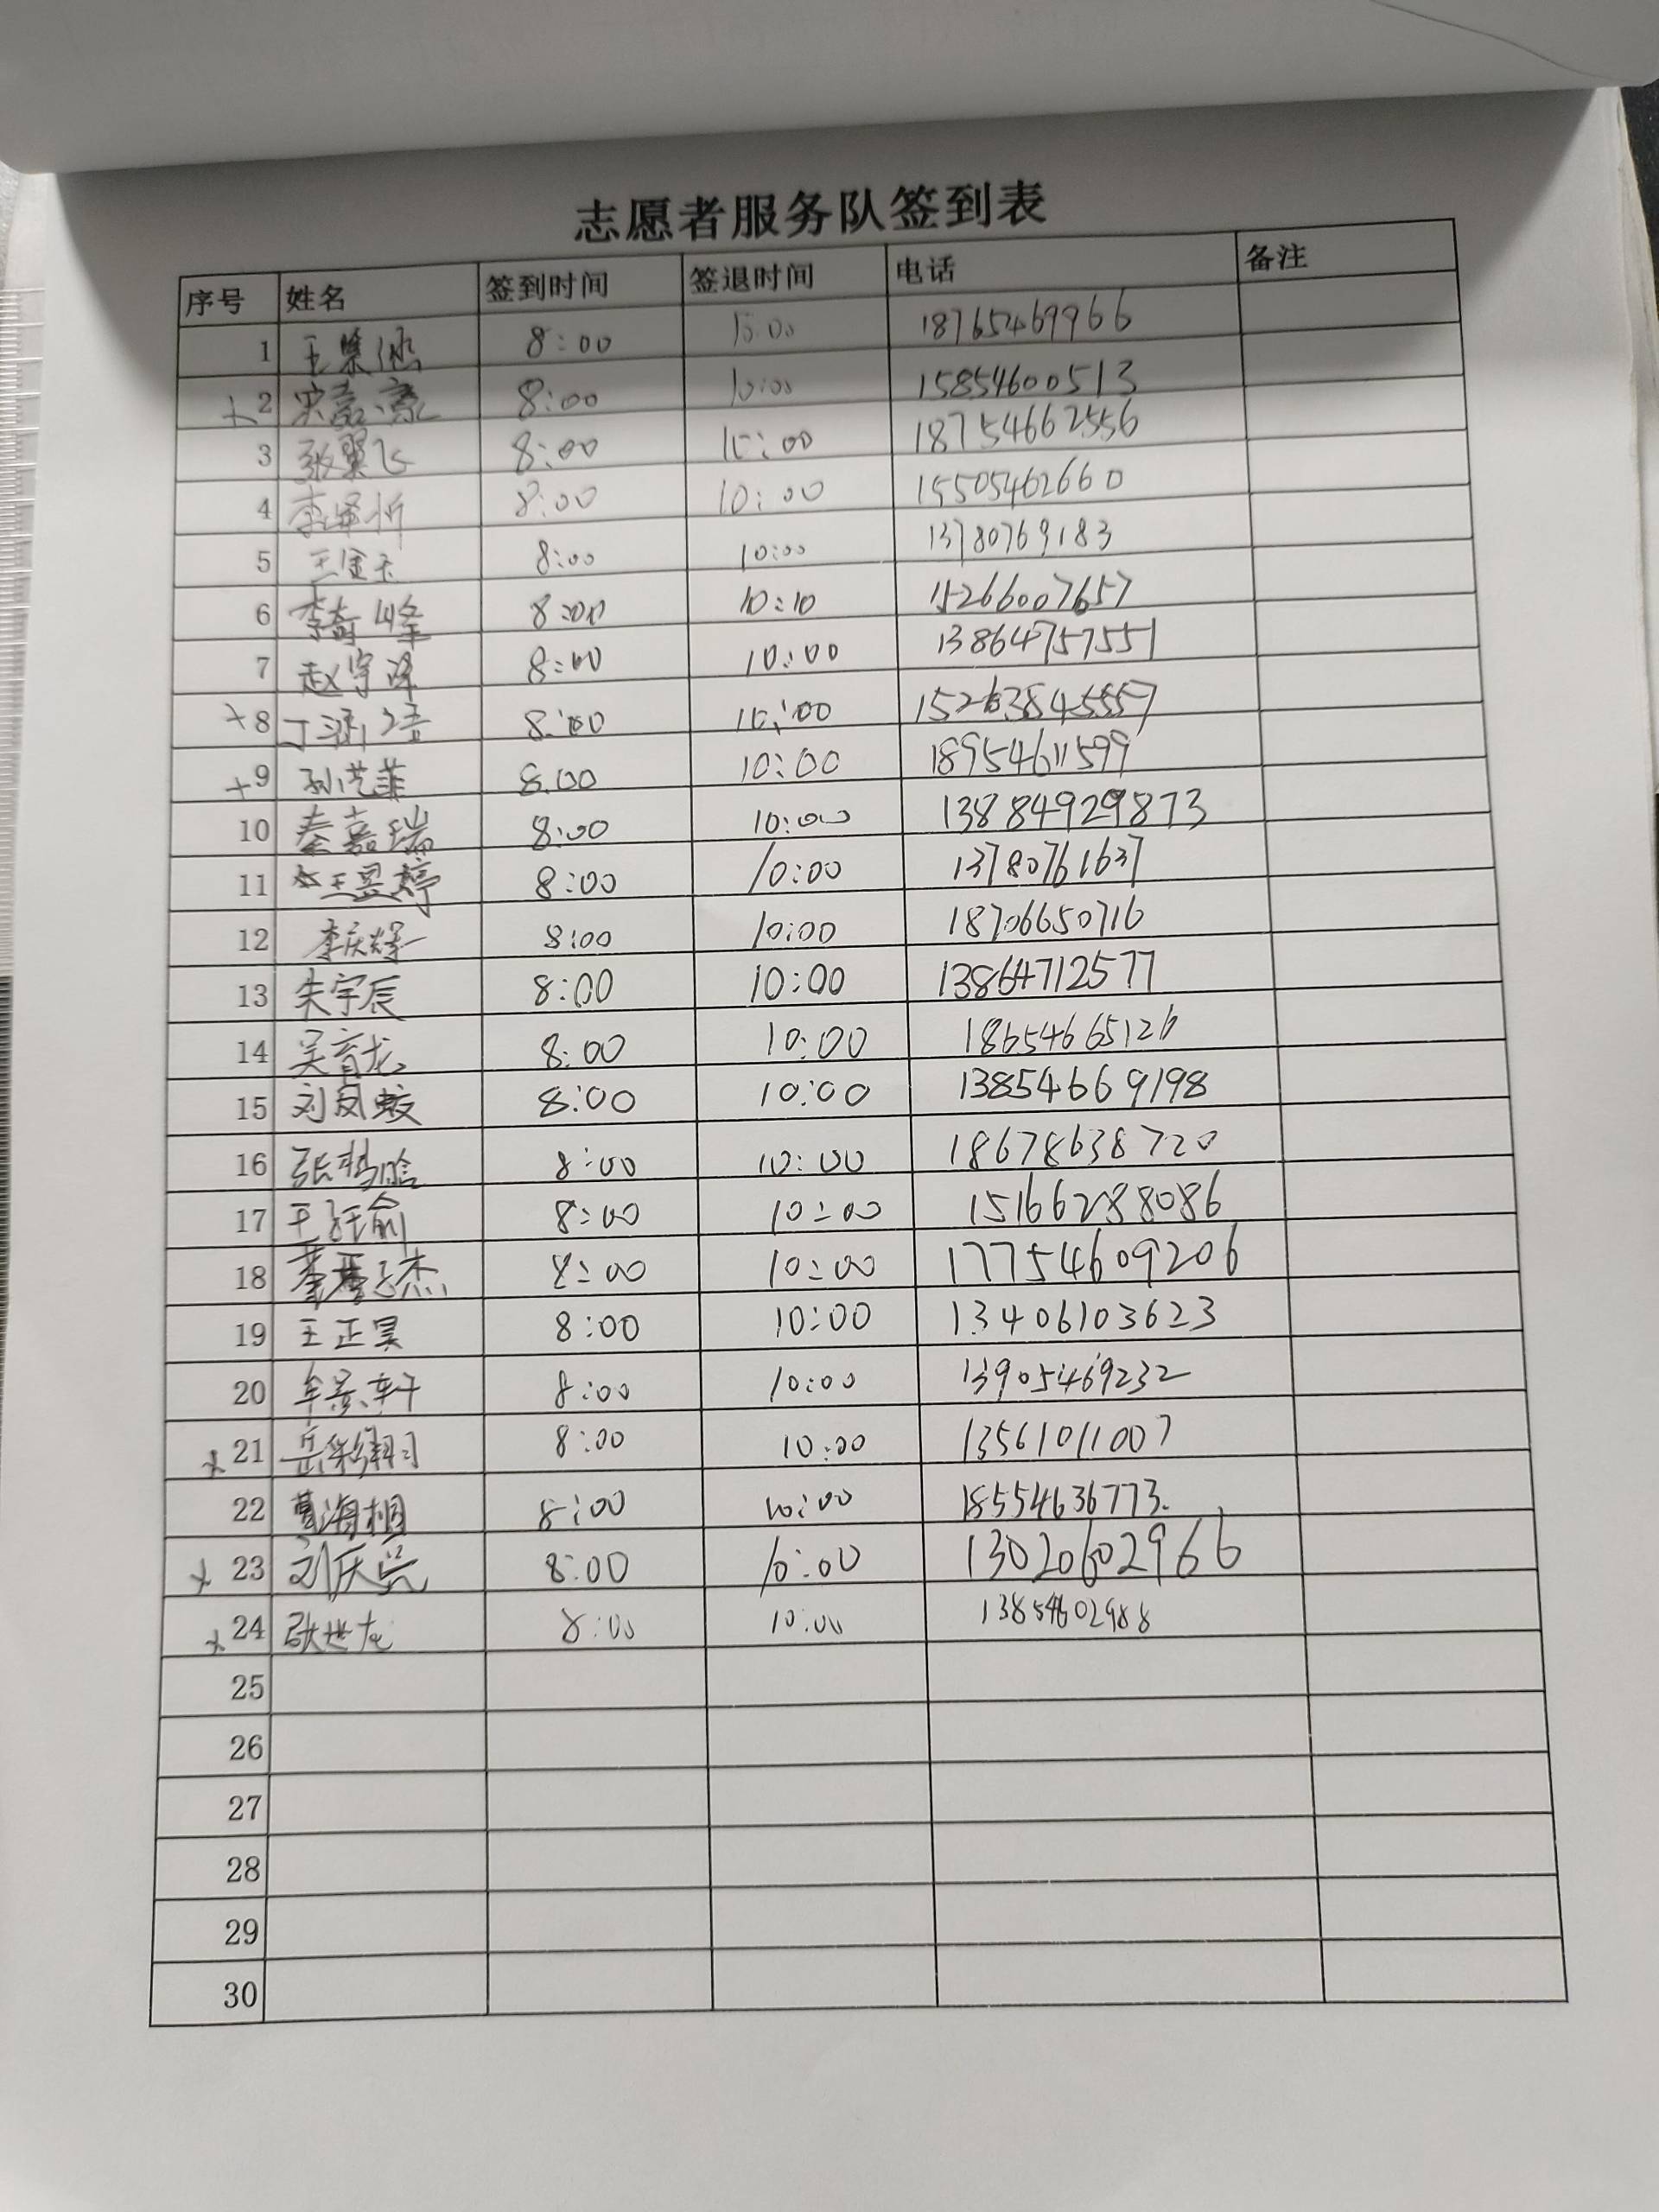 志愿者服务队签到表
序号 姓名 签到时间 签退时间 电话 备注
1 8:00 10:00 18765469966
+2 宋嘉豪 8:00 10:00 15854600513
3 张翼飞 8:00 10:00 18754662556
4 李泽忻 8:00 10:00 15505462660
5 王金玉 8:00 10:00 13780769183
6 李奇峰 8:00 10:10 15266007657
7 赵宇泽 8:00 10:00 13864757551
+8 丁 8:00 10:00
+9 孙艺菲 8:00 10:00 18954611599
10 秦嘉瑞 8:00 10:00 13884929873
11 王昱婷 8:00 10:00 13780761637
12 李庆 8:00 10:00 18706650716
13 朱宇辰 8:00 10:00 13864712577
14 吴育龙 8:00 10:00 18654665126
15 刘凤蛟 8:00 10:00 13854669198
16 张 8:00 10:00 18678638720
17 王 8:00 10:00 15166288086
18 董 杰 8:00 10:00 17754609206
19 王正昊 8:00 10:00 13406103623
20 牟景轩 8:00 10:00 13905469232
+21 岳 8:00 10:00 13561011007
22 葛海桐 8:00 10:00 18554636773.
+23 刘庆 8:00 10:00 13020602966
+24 张世龙 8:00 10:00 13854602988
25
26
27
28
29
30